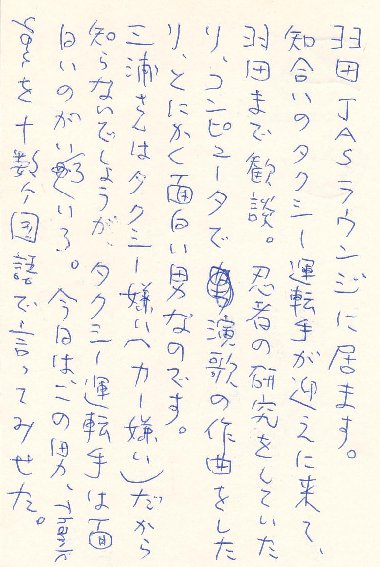 羽田JASラウンジに居ます。
知合いのタクシー運転手が迎えに来て、
羽田まで歓談。忍者の研究をしていた
り、コンピュータで演歌の作曲をした
り、とにかく面白い男なのです。
三浦さんはタクシー嫌い(カー嫌い)だから
知らないでしょうが、タクシー運転手は面
白いのがいろいろ。今日はこの男、I love
youを十数ヶ国語で言ってみせた。